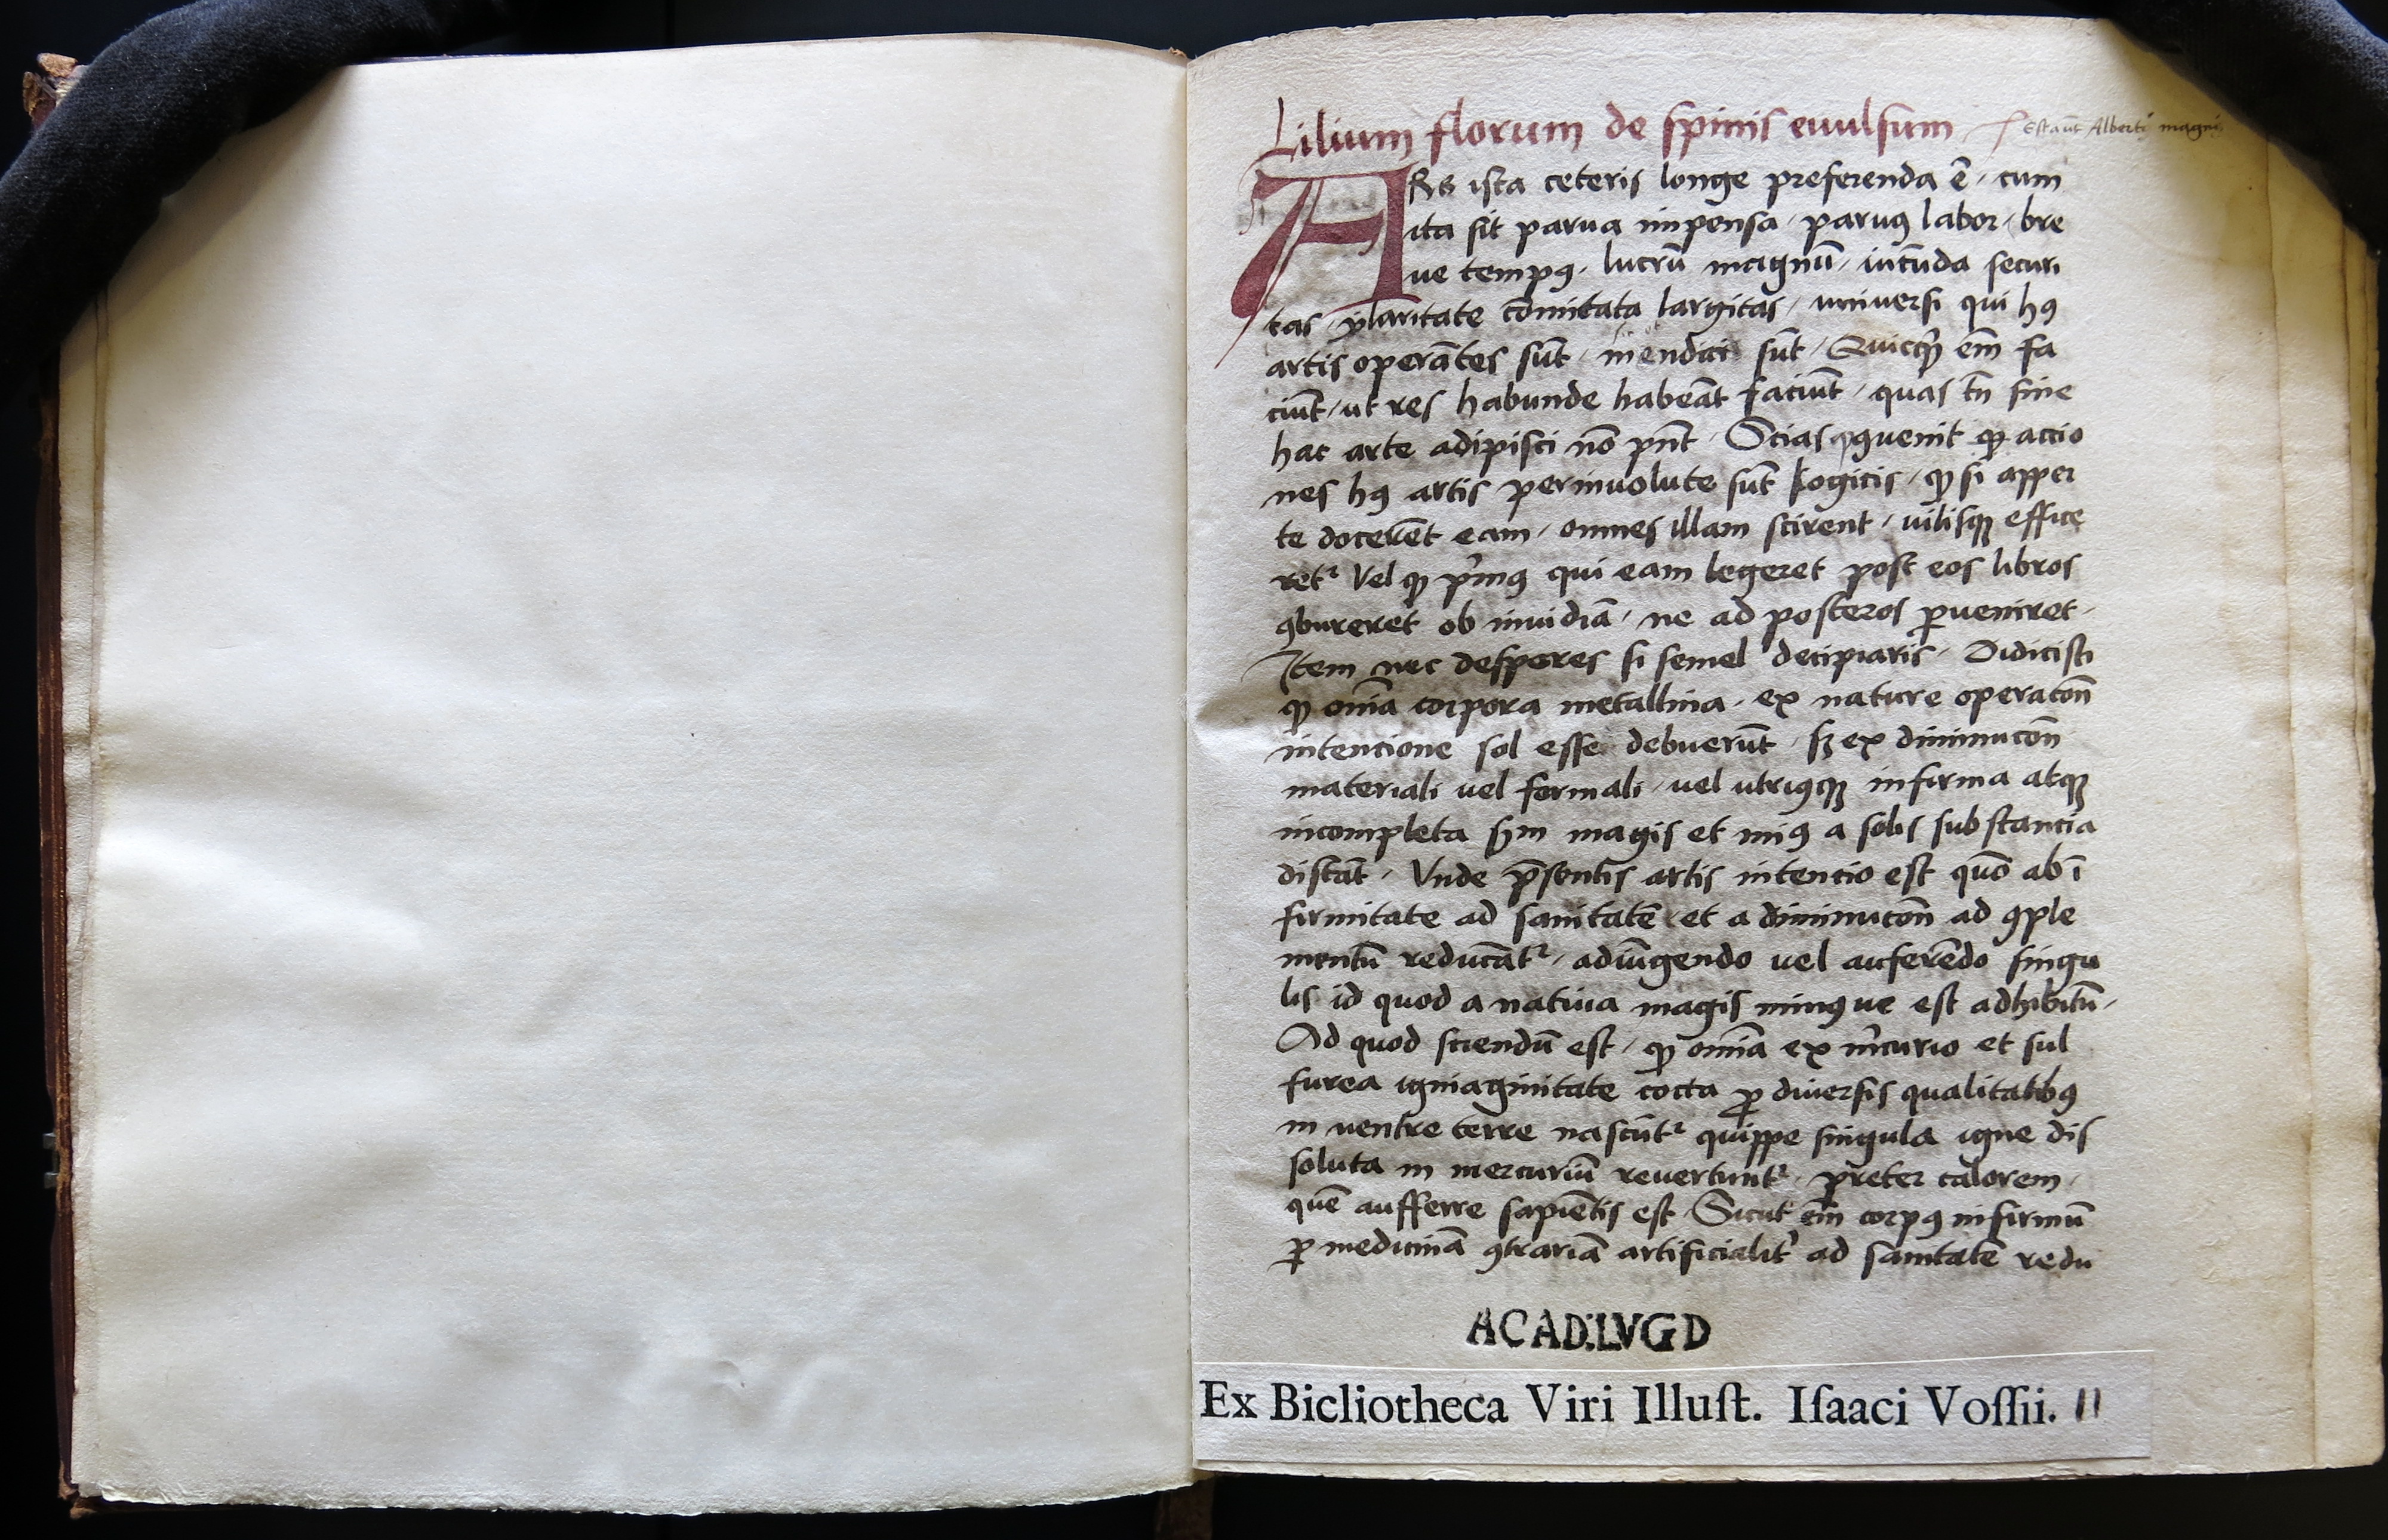 Lilium florum de spinis euulsum
Estaūt Alberti magni
ARs ista ceteris longe preferenda ē / cum
ita sit parua impensa / paruꝯ labor / bre
ue tempꝯ / lucrū magnū / iucūda securi
tas / ylaritate cōmitata largitas / vniuersi qui hꝯ
artis operātes sūt / mendici sūt / Quicqͥd em̄ fa
ciūt / ut res habunde habeāt faciūt / quas tn̄ sine
hac arte adipisci nō pn̄t / Scias ꝙ ꝯuenit ꝙ actio
nes hꝯ artis perinuolute sūt logicis / ꝙ si apper
te docerēt eam / omnes illam scirent / uilisqꝫ effice
ret᷑ Vel ꝙ pͥmꝯ qui eam legeret post eos libros
ꝯbureret ob inuidiā / ne ad posteros ꝑueniret /
Item nec desperes si semel decipiaris / Didicisti
ꝙ om̄ia corpora metallina / ex nature operacōn
intencione sol esse debuerūt / sꝫ ex diminucōn
materiali uel formali / uel utriꝯqꝫ infirma atqꝫ
incompleta sꝫm magis et minꝯ a solis substancia
distāt / Vnde p̄sentis artis intencio est quō ab ī
firmitate ad sanitatē et a diminucōn ad ꝯple
mentū reducāt᷑ / adiūgendo uel auferēdo singu
lis id quod a natiua magis minꝯue est adhibitū /
Ad quod sciendū est / ꝙ om̄ia ex m̄curio et sul
furea cocta ꝓ diuersis qualitatibꝯ
in uentre terre nascūt᷑ quippe singula igne dis
soluta in mercuriū reuertunt᷑ / preter calorem /
quē aufferre sapiētis est / Sicut em̄ corpꝯ infirmū
ꝑ medicinā ꝯtrariā artificialit᷑ ad sanitatē redu
ACAD:LVGD
Ex Bicliotheca Viri Illuſt. Iſaaci Voſſii. 11